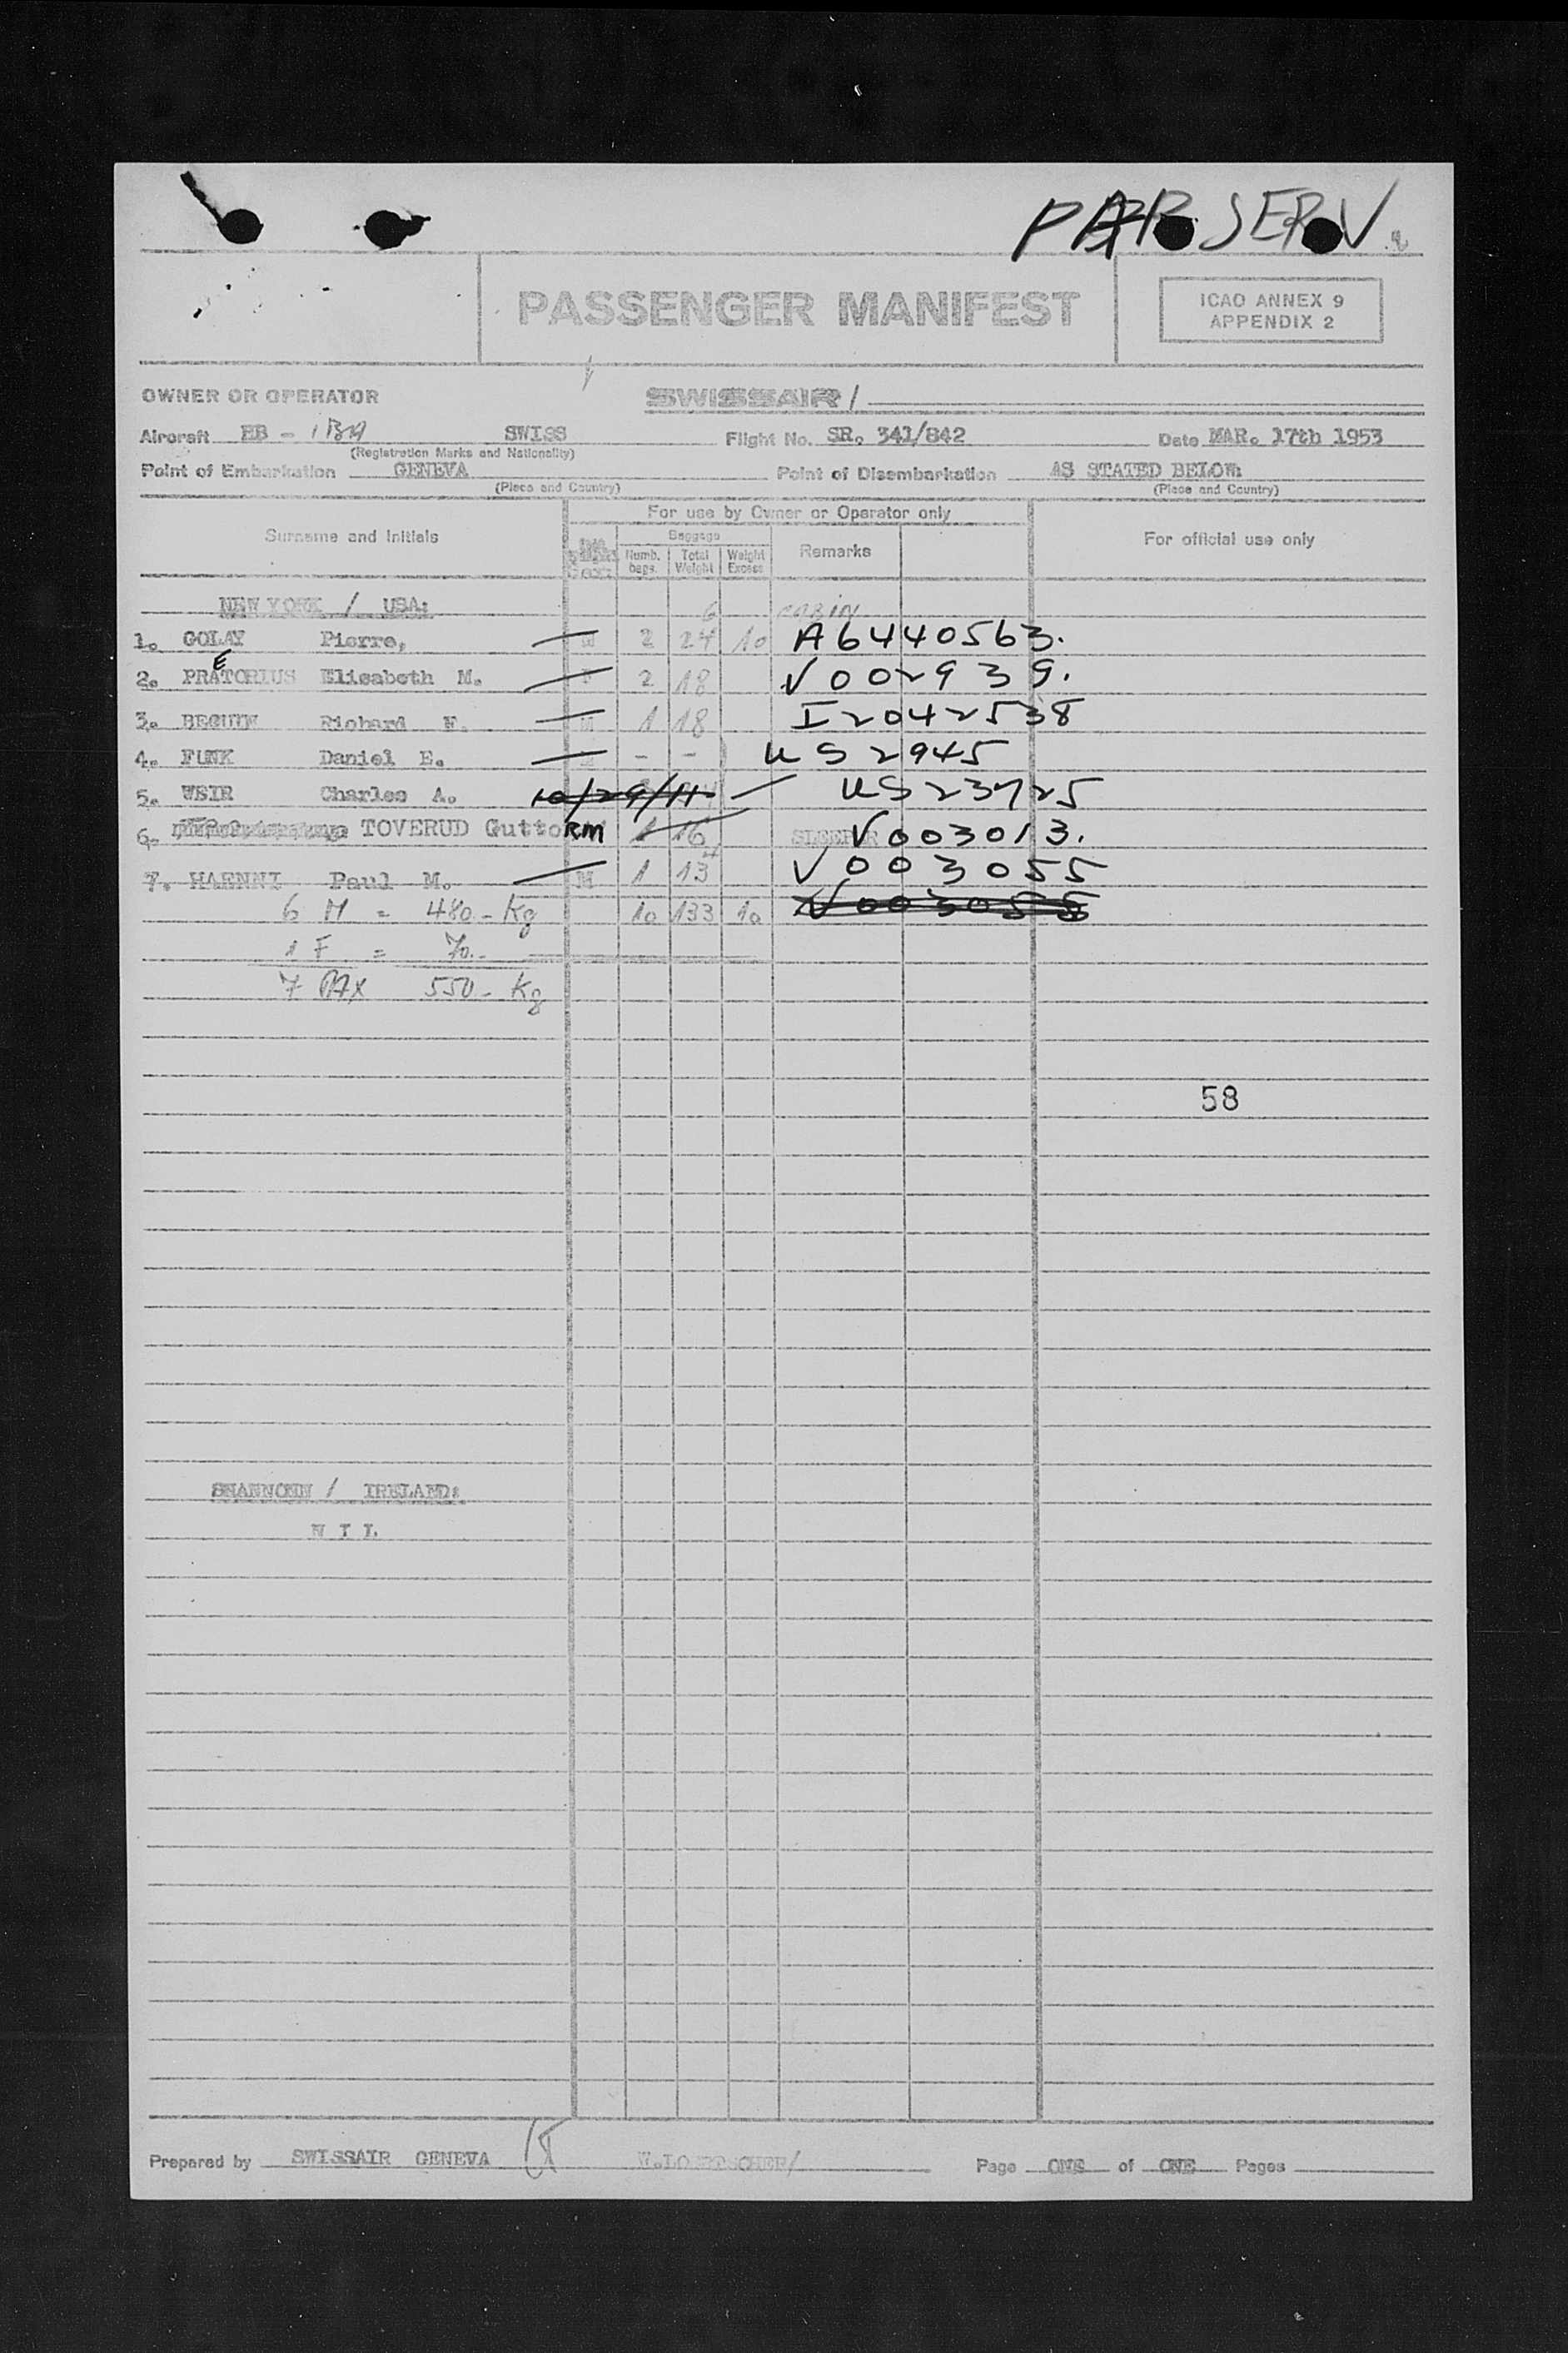 PAR SERV
PASSENGER MANIFEST
ICAO ANNEX 9
APPENDIX 2
OWNER OR OPERATOR SWISSAIR/
Aircraft HB - IBA SWISS Flight No. SR. 341/842 Date MAR. 17th 1953
(Registration Marks and Nationality)
Point of Embarkation GENEVA Point of Disembarkation AS STATED BELOW
(Place and Country) (Place and Country)
For use by Owner or Operator only
Surname and Initials Baggage Remarks For official use only
Numb. bags. Total Weight Weight Excess
NEW YORK / USA: 6 cabin
1. GOLAY Pierre, M 2 24 10 A6440563.
E
2. PRATORIUS Elisabeth M. F 2 18 V002939.
3. BEGUIN Richard F. M 1 18 I2042538
4. FUNK Daniel E. - - US2945
5. WEIR Charles A. 10/29/11 US23725
6. TOVERUD GuttoRM 1 16 SLEEPER V003013.
7. HAENNI Paul M. M 1 13 V003055
6 M = 480.- Kg 10 133 10 V003055
1 F = 70.-
7 PAX 550.- Kg
58
SHANNONN / IRELAND:
N I L
Prepared by SWISSAIR GENEVA W.LOERTSCHER/ Page ONE of ONE Pages